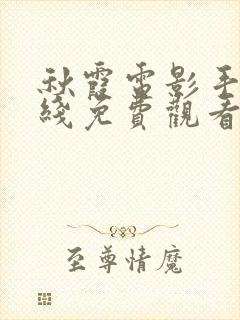 秋霞電影手
綫免費觀看
至尊情魔